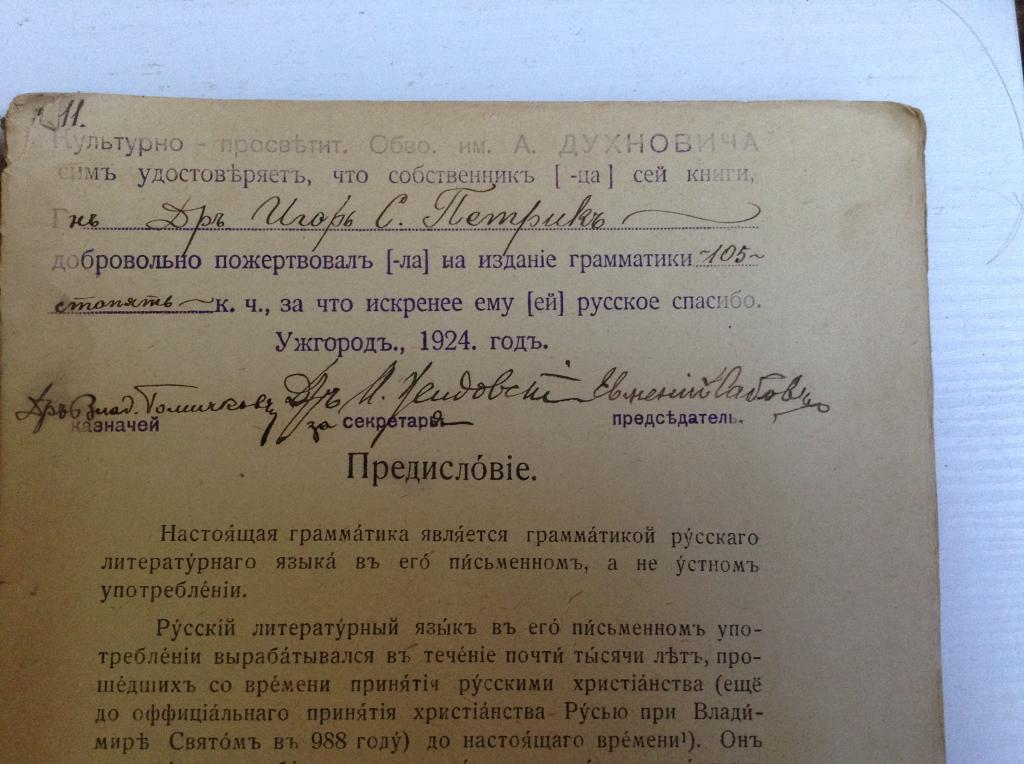 11.
Культурно - просвѣтит. Обво. им. А. ДУХНОВИЧА
симъ удостовѣряетъ, что собственникъ [ -ца ] сей книги,
Гнъ Дръ Игорь С. Петрикъ
добровольно пожертвовалъ [-ла] на изданіе грамматики ~105~
стопять к. ч., за что искренее ему [ей] русское спасибо.
Ужгородъ., 1924. годъ.
Дръ Влад. Гомичковъ Дръ Евменій Сабовъ
казначей за секретарь предсѣдатель.
Предисло́віе.
Настоя́щая грамма́тика явля́ется грамма́тикой ру́сскаго
литерату́рнаго языка́ въ его́ пи́сьменномъ, а не у́стномъ
употребле́ніи.
Ру́сскій литерату́рный язы́къ въ его́ пи́сьменномъ упо-
требле́ніи выраба́тывался въ тече́ніе почти́ ты́сячи лѣтъ, про-
ше́дшихъ со вре́мени приня́тія ру́сскими христіа́нства (ещё
до оффиціа́льнаго приня́тія христіа́нства Ру́сью при Влади́-
мирѣ Свято́мъ въ 988 году́) до настоя́щаго вре́мени¹). Онъ